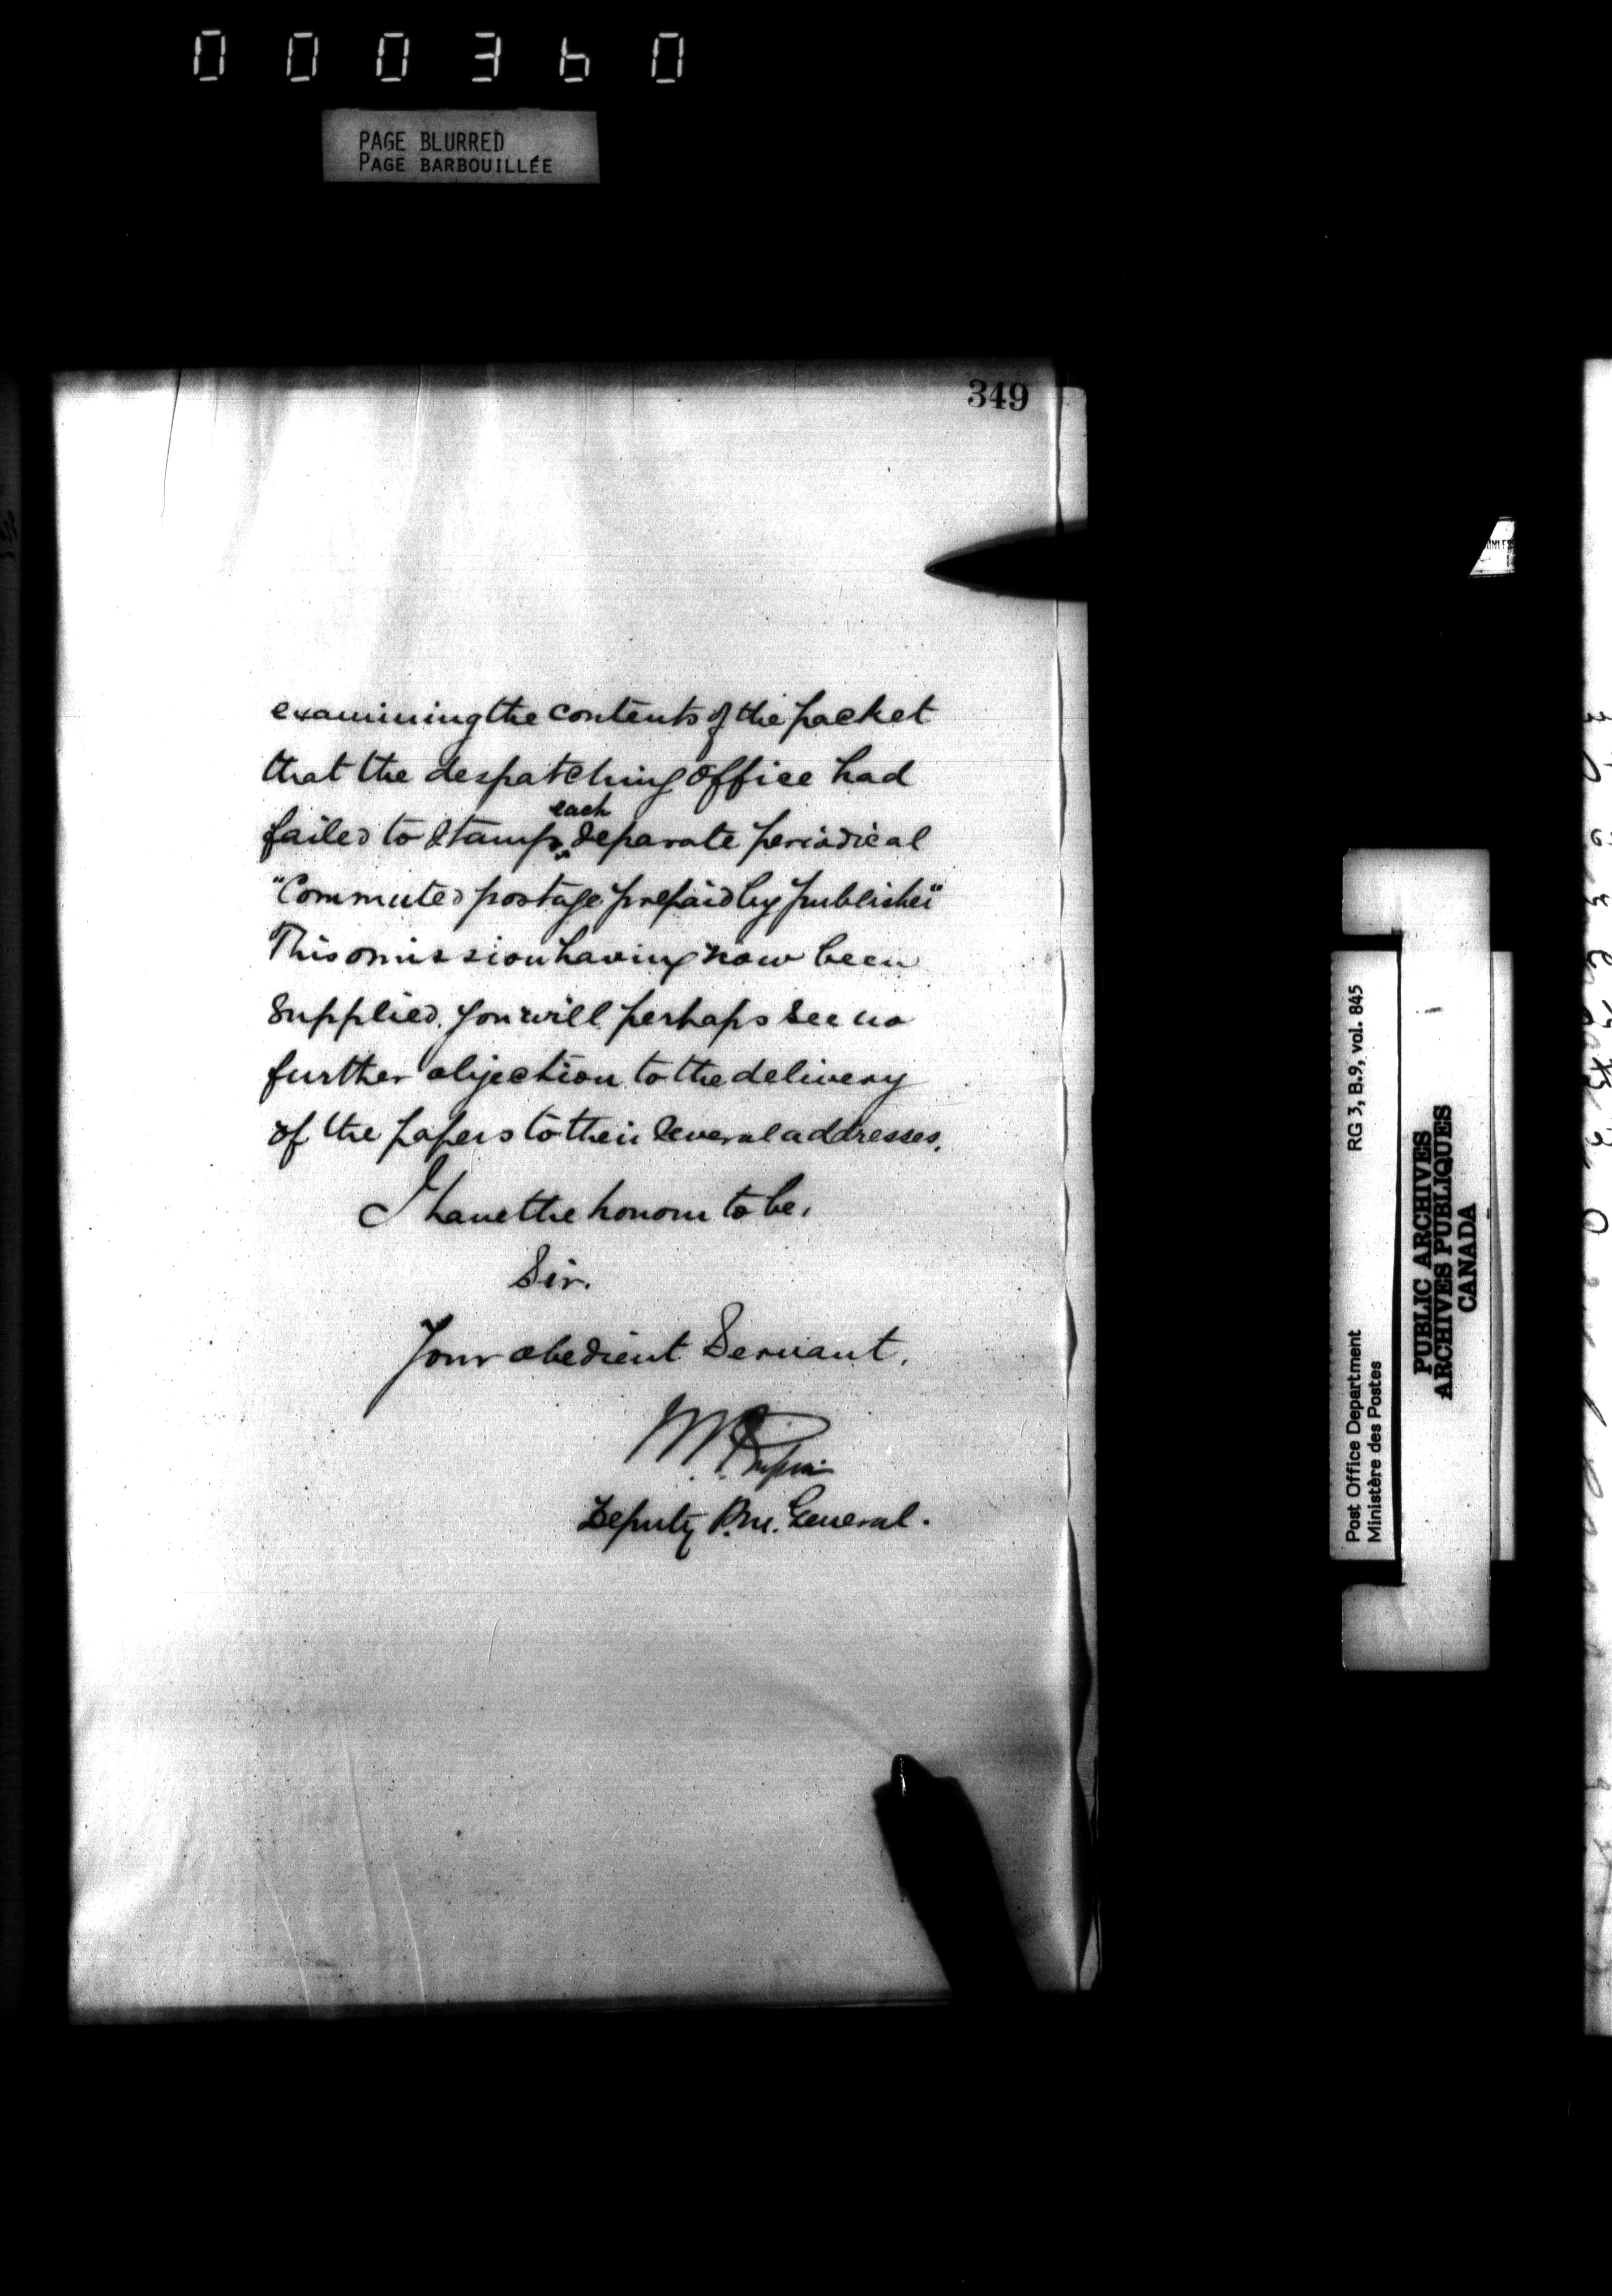 000360
PAGE BLURRED
PAGE BARBOUILLÉE
349
examining the contents of the packet
that the despatching office had
each
failed to stamp separate periodical
"Commuted postage prepaid by publisher"
This omission having now been
supplied, you will perhaps see no
further objection to the delivery
of the papers to their several addresses.
I have the honour to be,
Sir.
Your obedient Servant,
Deputy P.M. General.
Post Office Department
Ministère des Postes
RG 3, B.9, vol. 845
PUBLIC ARCHIVES
ARCHIVES PUBLIQUES
CANADA